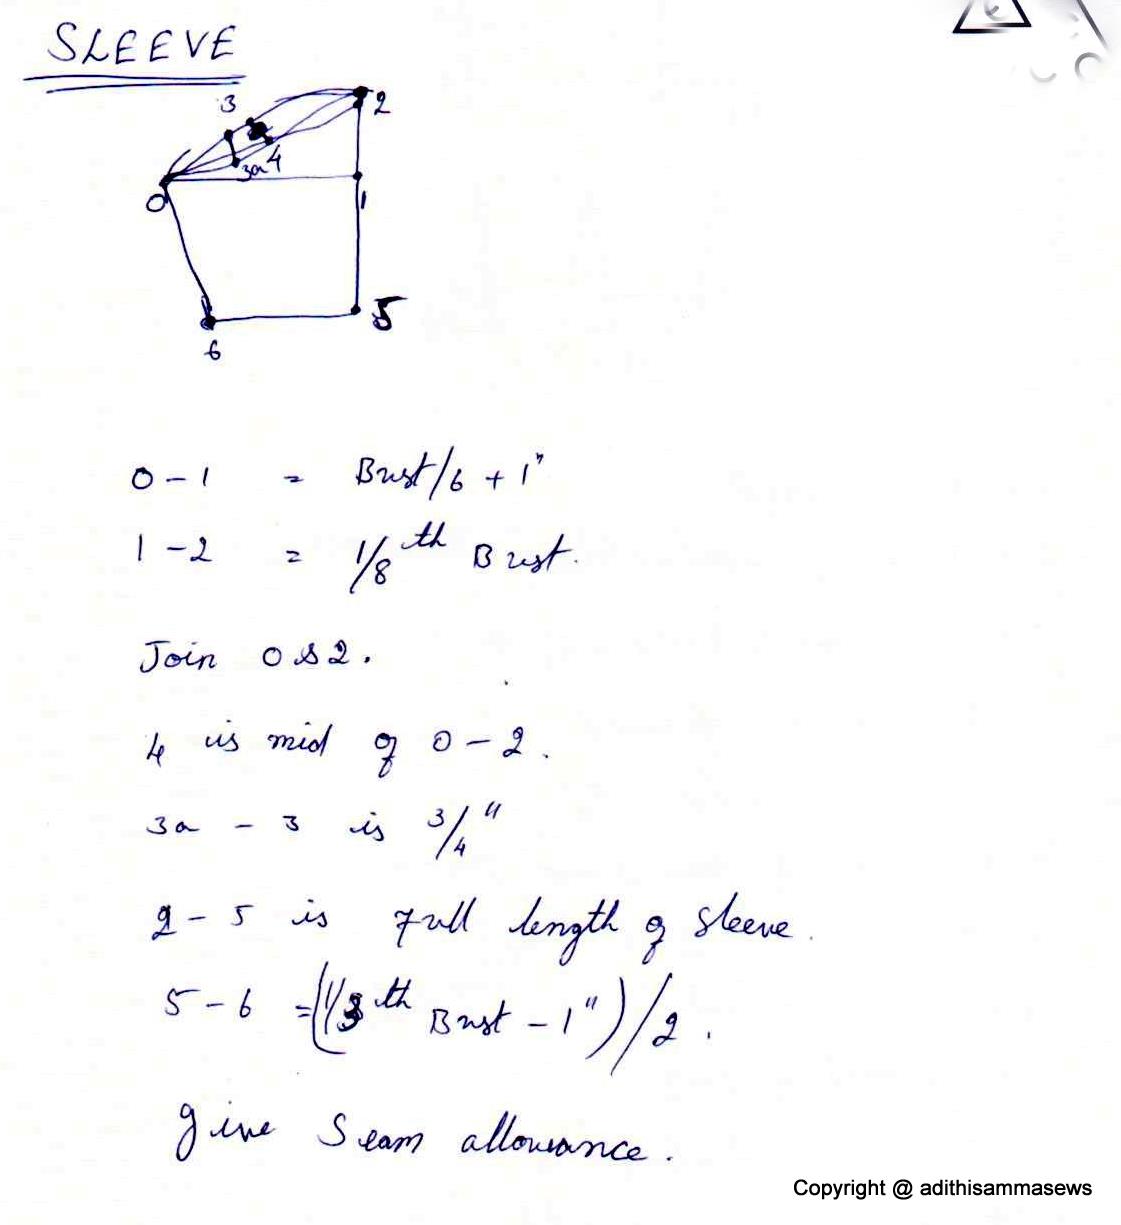 SLEEVE
3
2
3a 4
0
1
5
6
0 - 1 = Bust/6 + 1"
1 - 2 = 1/8th Bust.
Join 0 & 2.
4 is mid of 0 - 2.
3a - 3 is 3/4"
2 - 5 is full length of sleeve.
5 - 6 = (1/3th Bust - 1")/2.
give seam allowance.
Copyright @ adithisammasews